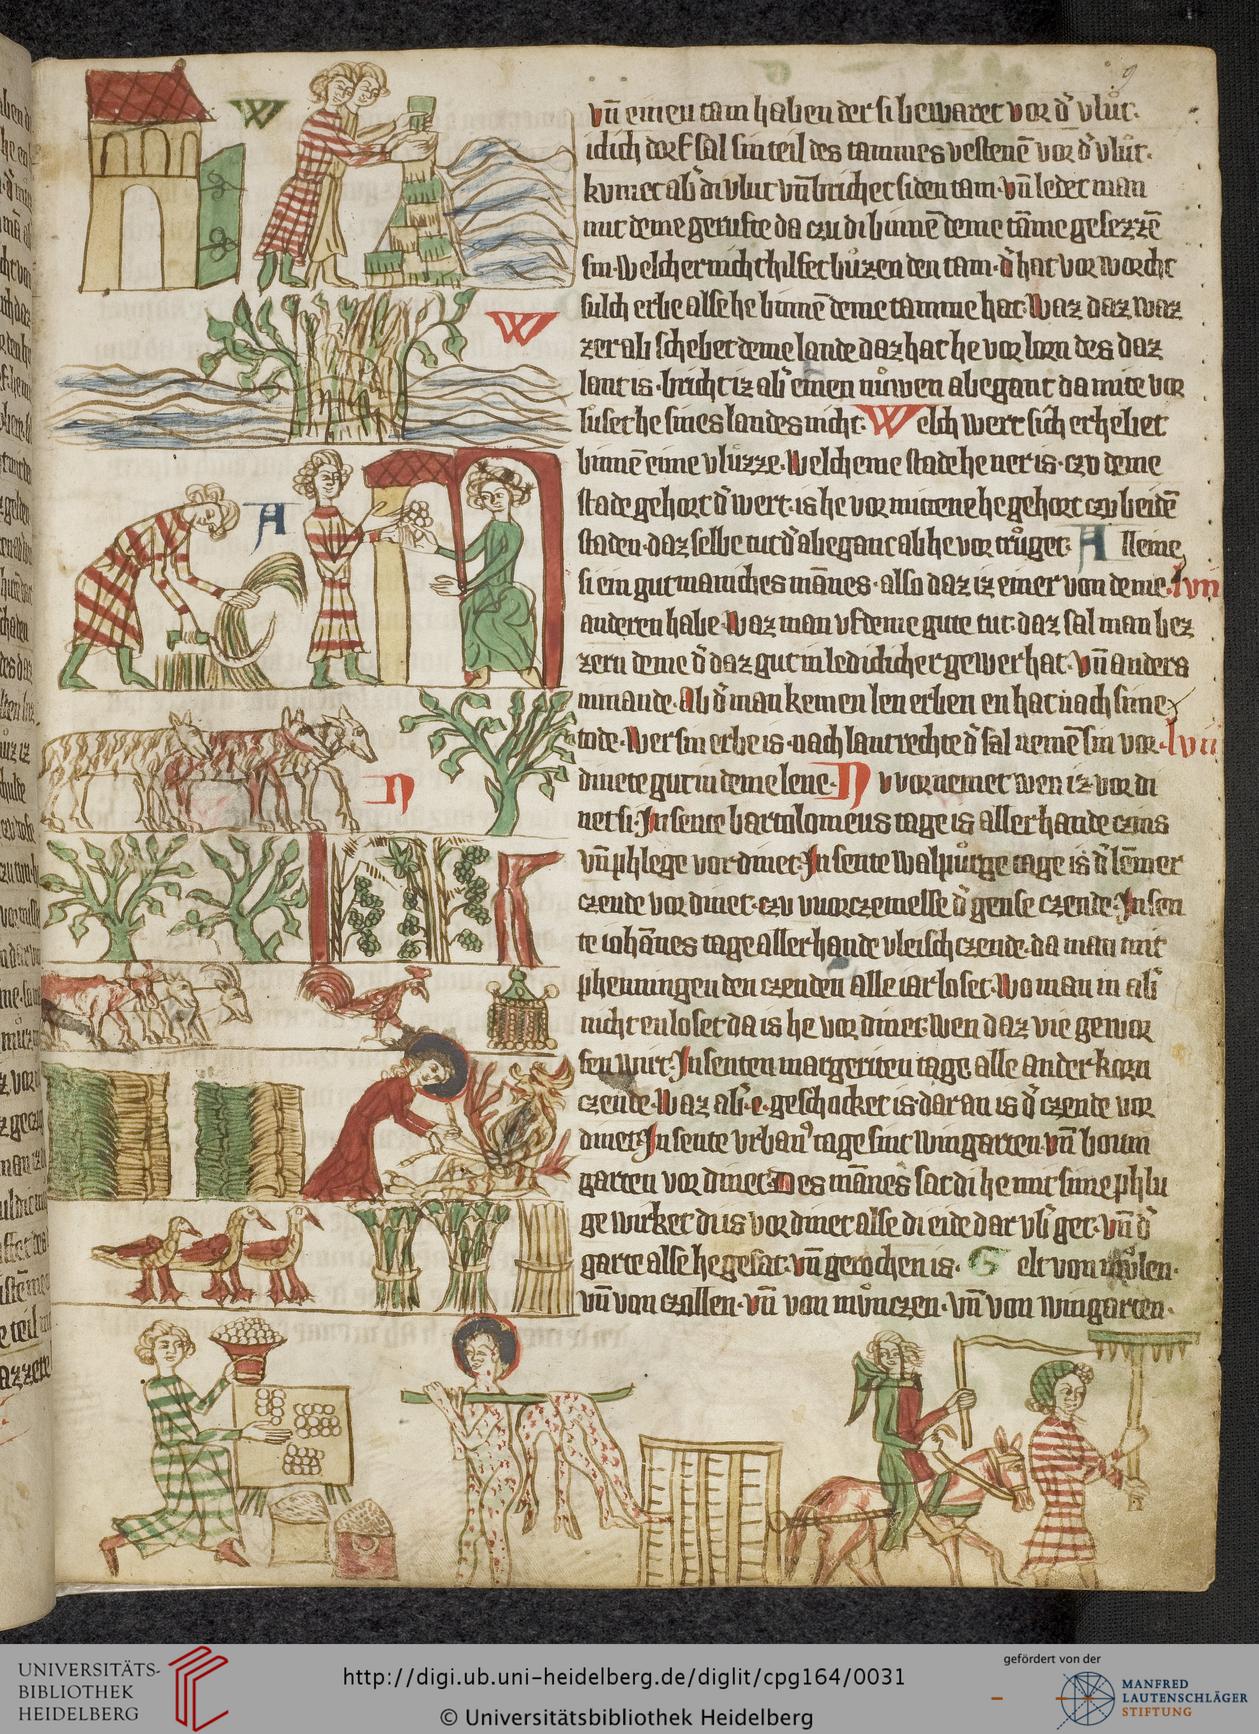 9
W
vn̄ einen tam haben der si bewaret vor d' vlut.
iclich dorf sal sin teil des tammes vestenē vor d' vlut.
kvmet ab' di vlut vn̄ brichet si den tam. vn̄ ledet man
mit deme gerufte da czu di binnē deme tāme gesezzē
sin. Welcher nicht hilfet bůzen den tam. d' hat vorworcht
sulch erbe alse he binnē deme tamme hat. Waz daz waz
W
zer ab schebet deme lande daz hat he vorlorn des daz
lant is. bricht iz ab' einen nůwen abeganc da mite vor
luset he sines landes nicht. Welch wert sich erhebet
binnē eime vlůzze. Welcheme stade he ner is. czv deme
stade gehort d' wert. is he vor mittene he gehort czu beidē
A
staden. daz selbe tut d' abeganc ab he vortrůget. Alleme
si ein gut maniches mānes. also daz iz einer von deme. lvii
anderen habe. Waz man vf deme gute tut. daz sal man bez
zern deme d' daz gut in ledichlicher gewer hat. vn̄ anders
nimande. Ab d' man keinen len erben en hat nach sime
tode. Wer sin erbe is. nach lantrechte d' sal nemē sin vor. lviii
N
dinete gut in deme lene. Nv vornemet wen iz vordi
net si. In sente bartolomeus tage is allerhande czins
vn̄ phlege vordinet. In sente Walpurge tage is d' lēmer
czende vordinet. czu worczemesse d' gense czende. In sen
te iohānes tage allerhande vleisch czende. da man mit
phenningen den czenden alle iar loset. Wo man in ab'
nicht en loset da is he vordinet wen daz vie gewor
fen wirt. In senten margreten tage alle ander korn
czende. Waz ab'. e. geschocket is. dar an is d' czende vor
dinet. In sente vrban' tage sint wingarten vn̄ boum
garten vordinet. Des mānes sat di he mit sime phlu
ge wirket di is vordinet alse di eide dar vb' get. vn̄ d'
garte alse he gesat. vn̄ gerechen is. Gelt von mulen.
vn̄ von czollen. vn̄ von mvnczen. vn̄ von wingarten.
UNIVERSITÄTS-
BIBLIOTHEK
HEIDELBERG
http://digi.ub.uni-heidelberg.de/diglit/cpg164/0031
© Universitätsbibliothek Heidelberg
gefördert von der
MANFRED
LAUTENSCHLÄGER
STIFTUNG